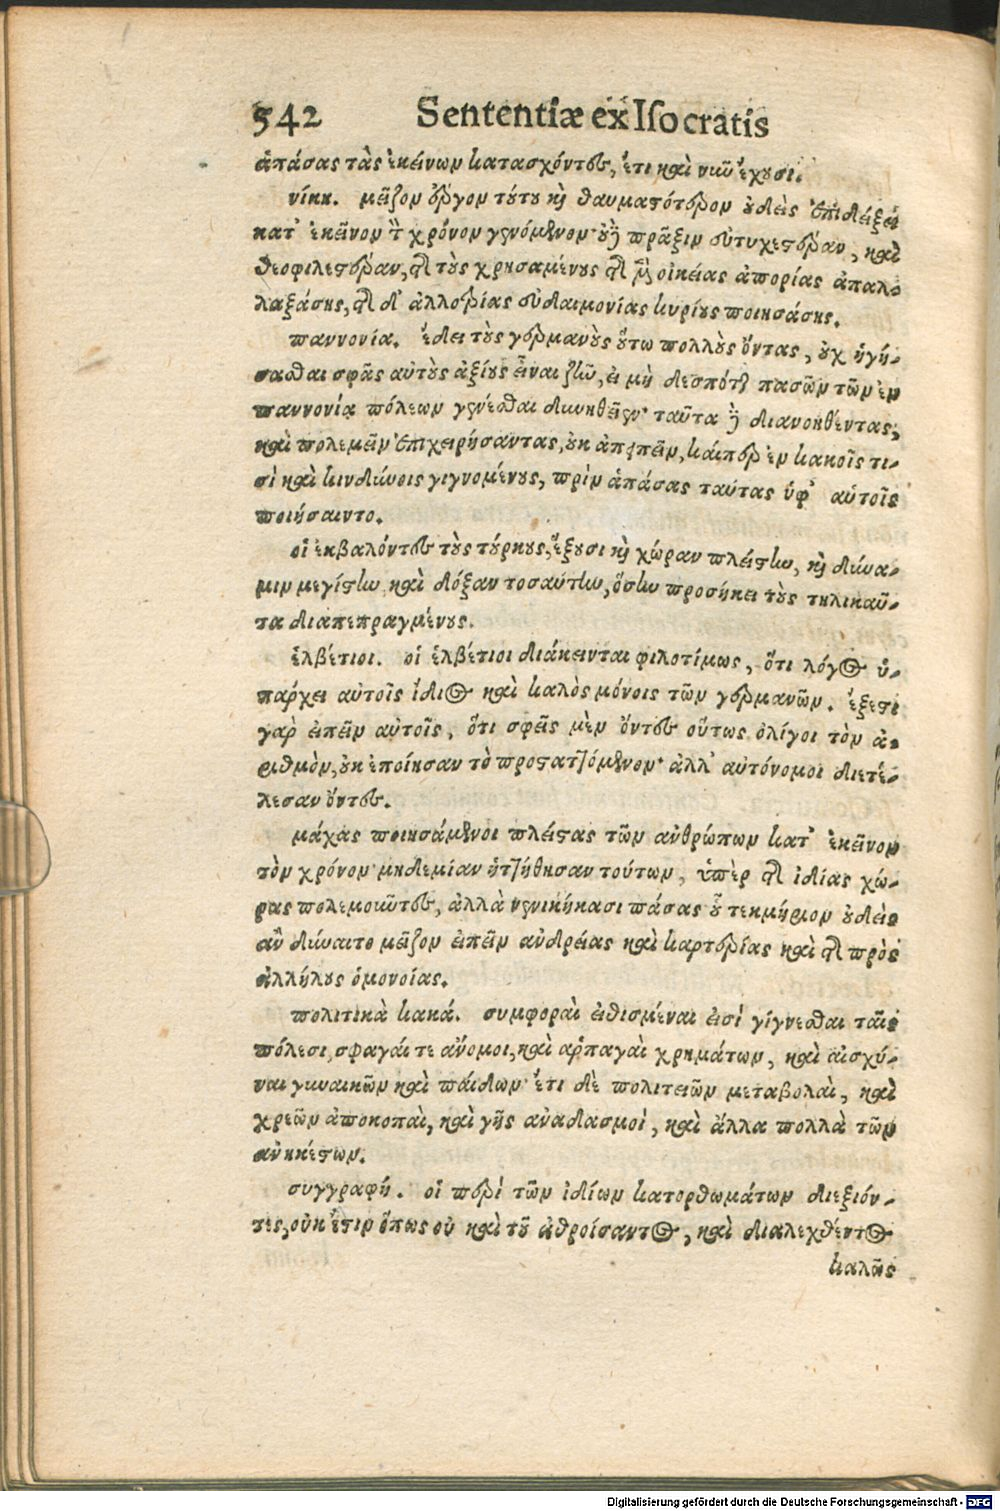 542 Sententiæ ex Isocratis
ἁπάσας τὰς ἐκείνων κατασχόντες, ἔτι καὶ νῦν ἔχουσι.
νίκη. μεῖζον ἔργον τούτου καὶ θαυμαστότερον οὐδεὶς ἐπιδείξει
κατ' ἐκεῖνον τὸν χρόνον γενόμενον· οὐδὲ πρᾶξιν εὐτυχεστέραν, καὶ
θεοφιλεστέραν, τῆς τοὺς χρησαμένους τῆς μὲν οἰκείας ἀπορίας ἀπαλ-
λαξάσης, τῆς δ' ἀλλοτρίας εὐδαιμονίας κυρίους ποιησάσης.
παννονία. ἔδει τοὺς γερμανοὺς οὕτω πολλοὺς ὄντας, οὐχ ἡγή-
σασθαι σφᾶς αὐτοὺς ἀξίους εἶναι ζῆν, εἰ μὴ δεσπόται πασῶν τῶν ἐν
παννονίᾳ πόλεων γενέσθαι δυνηθεῖεν· ταῦτα δὲ διανοηθέντας,
καὶ πολεμεῖν ἐπιχειρήσαντας, οὐκ ἀπειπεῖν, καίπερ ἐν κακοῖς τι-
σὶ καὶ κινδύνοις γιγνομένους, πρὶν ἁπάσας ταύτας ὑφ' αὑτοῖς
ποιήσαιντο.
οἱ ἐκβαλόντες τοὺς τύρκους, ἕξουσι καὶ χώραν πλείστην, καὶ δύνα-
μιν μεγίστην, καὶ δόξαν τοσαύτην, ὅσην προσήκει τοὺς τηλικαῦ-
τα διαπεπραγμένους.
ἑλβέτιοι. οἱ ἑλβέτιοι διάκεινται φιλοτίμως, ὅτι λόγος ὑ-
πάρχει αὐτοῖς ἴδιος καὶ καλὸς μόνοις τῶν γερμανῶν. ἔξεστι
γὰρ εἰπεῖν αὐτοῖς, ὅτι σφεῖς μὲν ὄντες οὕτως ὀλίγοι τὸν ἀ-
ριθμὸν, οὐκ ἐποίησαν τὸ προσταττόμενον· ἀλλ' αὐτόνομοι διετέ-
λεσαν ὄντες.
μάχας ποιησάμενοι πλείστας τῶν ἀνθρώπων κατ' ἐκεῖνον
τὸν χρόνον· μηδεμίαν ἡττήθησαν τούτων, ὑπὲρ τῆς ἰδίας χώ-
ρας πολεμοῦντες, ἀλλὰ νενικήκασι πάσας οὗ τεκμήριον οὐδεὶς
ἂν δύναιτο μεῖζον εἰπεῖν ἀνδρείας καὶ καρτερίας καὶ τῆς πρὸς
ἀλλήλους ὁμονοίας.
πολιτικὰ κακά. συμφοραὶ εἰθισμέναι εἰσὶ γίγνεσθαι ταῖς
πόλεσι, σφαγαί τε ἄνομοι, καὶ ἁρπαγαὶ χρημάτων, καὶ αἰσχύ-
ναι γυναικῶν καὶ παίδων· ἔτι δὲ πολιτειῶν μεταβολαὶ, καὶ
χρεῶν ἀποκοπαὶ, καὶ γῆς ἀναδασμοὶ, καὶ ἄλλα πολλὰ τῶν
ἀνηκέστων.
συγγραφή. οἱ περὶ τῶν ἰδίων κατορθωμάτων διεξιόν-
τες, οὐκ ἔστιν ὅπως οὐ καὶ τοῦ ἀθροίσαντος, καὶ διαλεχθέντος
καλῶς
Digitalisierung gefördert durch die Deutsche Forschungsgemeinschaft - DFG